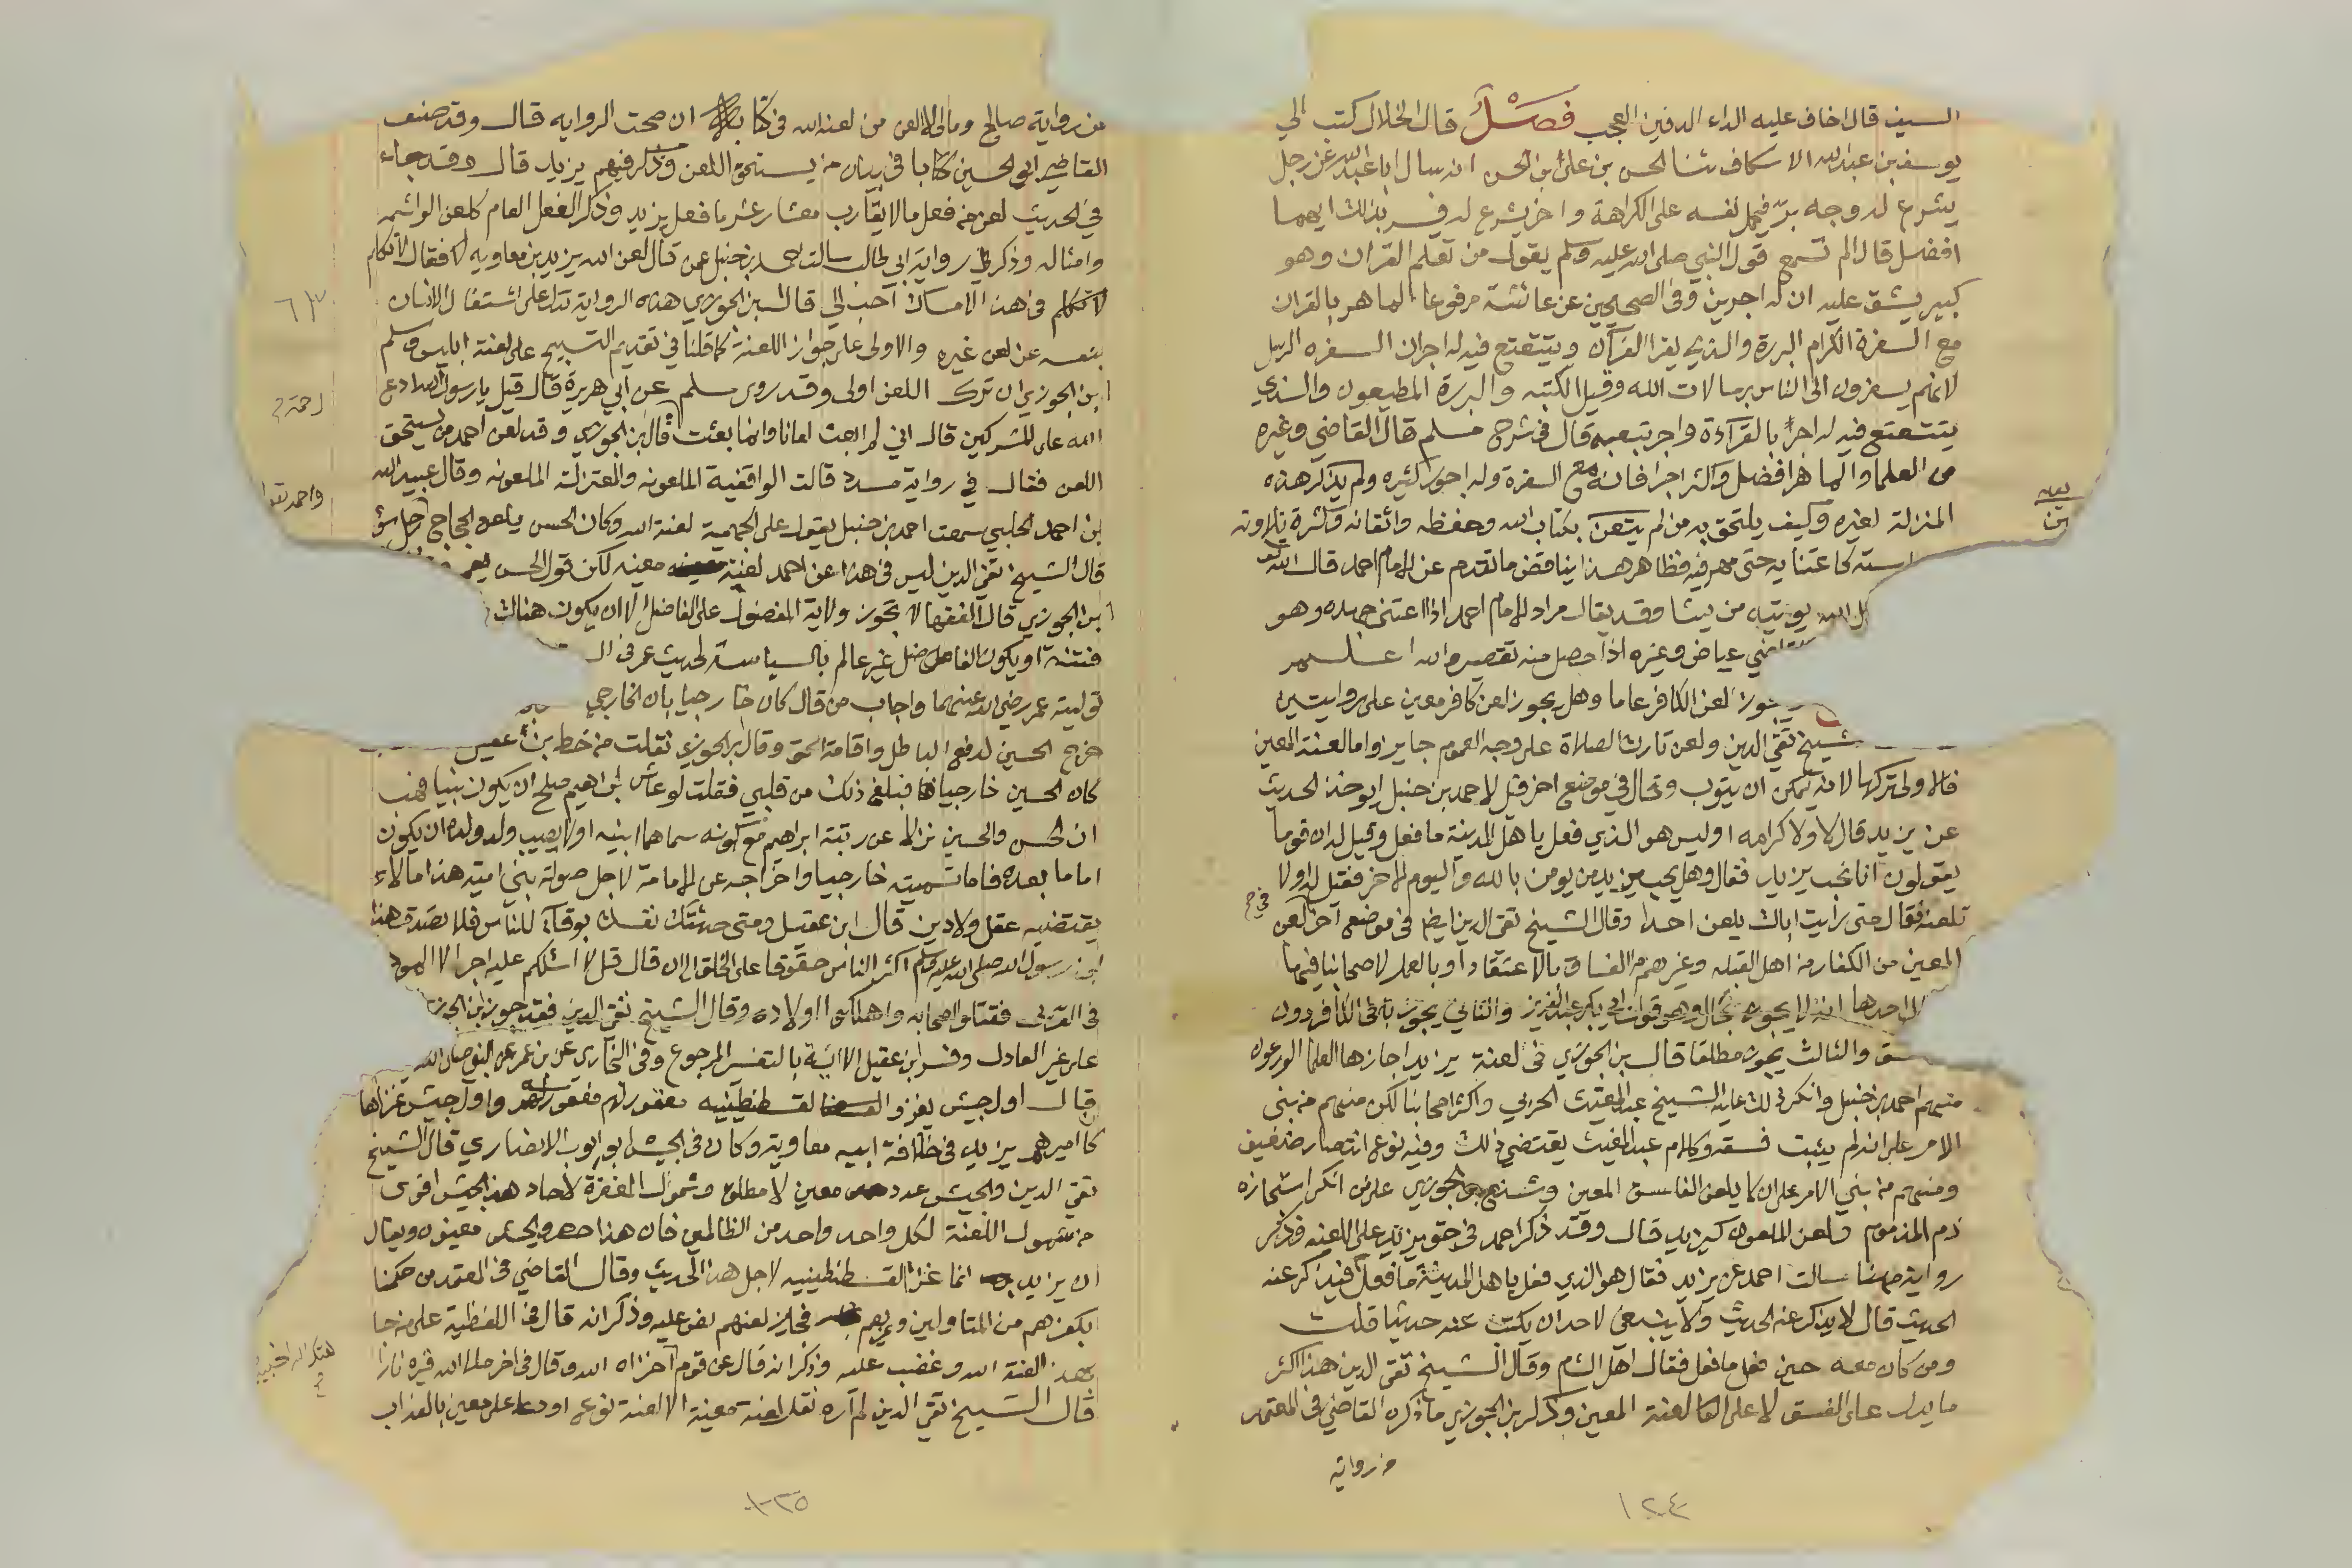 السيف قال اخاف عليه الداء الدفين العجب فصل قال الخلال كتب الي
يوسف بن عبد الله الاسكاف ثنا الحسن بن علي بن الحسن انه سال ابا عبد الله عن رجل
يشرع له وجه بر فيحمل نفسه على الكراهة واخر يشرع له فيسر بذلك ايهما
افضل قال الم تسمع قول النبي صلى الله عليه وسلم يقول من تعلم القران وهو
كبير يشق عليه ان له اجرين وفي الصحيحين عن عائشة مرفوعا الماهر بالقران
مع السفرة الكرام البررة والذي يقرا القرآن ويتتعتع فيه له اجران السفره الرسل
لانهم يسفرون الى الناس برسالات الله وقيل الكتبه والبررة المطيعون والذي
يتتعتع فيه له اجر بالقرآءة واجر بتعبه قال في شرح مسلم قال القاضي وغيره
من العلما والماهر افضل واكثر اجرا فانه مع السفرة وله اجور كثيره ولم يذكر هذه
المنزلة لغيره وكيف يلتحق به من لم يعتن بكتاب الله وحفظه واتقانه وكثرة تلاوته
استه كاعتنايه حتى مهر فيه فظاهر هذا يناقض ما تقدم عن الامام احمد قال الله تع
الله يوتيه من يشا وقد يقال مراد الامام احمد اذا اعتنى جهده وهو
القاضي عياض وغيره اذا حصل منه تقصير والله اعلم
يجوز لعن الكافر عاما وهل يجوز لعن كافر معين على روايتين
شيخ تقي الدين ولعن تارك الصلاة على وجه العموم جايز واما لعنة المعين
فالاولى تركها لانه يمكن ان يتوب وقال في موضع اخر قيل لاحمد بن حنبل ايوخذ الحديث
عن يزيد قال لا ولا كرامه اوليس هو الذي فعل باهل المدينة ما فعل وقيل له ان قوما
يقولون انا نحب يزيد فقال وهل يحب يزيد من يومن بالله واليوم الاخر فقيل له اولا
تلعنه فقال متى رايت اباك يلعن احدا وقال الشيخ تقي الدين ايضا في موضع اخر لعن
المعين من الكفار من اهل القبله وغيرهم من الفساق بالاعتقاد او بالعمل لاصحابنا فيها
احدها انه لا يجوز بحال وهو قول ابي بكر عبد العزيز والثاني يجوز في الكافر دون
سق والثالث يجوز مطلقا قال بن الجوزي في لعنة يزيد اجازها العلما الورعون
منهم احمد بن حنبل وانكر ذلك عليه الشيخ عبد المغيث الحربي واكثر اصحابنا لكن منهم من بنى
الامر على انه لم يثبت فسقه وكلام عبد المغيث يقتضي ذلك وفيه نوع انتصار ضعيف
ومنهم من بني الامر على ان لا يلعن الفاسق المعين وشنع بن الجوزي على من انكر استجازه
ذم المذموم ولعن الملعون كيزيد قال وقد ذكر احمد في حق يزيد ما يزيد على اللعنه وذكر
رواية مهنا سالت احمد عن يزيد فقال هو الذي فعل باهل المدينة ما فعل قلت فيذكر عنه
الحديث قال لا يذكر عنه الحديث ولا ينبغي لاحد ان يكتب عنه حديثا قلت
ومن كان معه حين فعل ما فعل فقال اهل الشام وقال الشيخ تقي الدين هذا اكثر
ما يدل على الفسق لا على لعنة المعين وذكر بن الجوزي ما ذكره القاضي في المعتمد
من رواية
١٢٤
من رواية صالح ومالي لا العن من لعنه الله في كتابه ان صحت الروايه قال وقد صنف
القاضي ابو الحسين كتابا في بيان من يستحق اللعن وذكر فيهم يزيد قال وقد جاء
في الحديث لعن من فعل ما لا يقارب معشار عشر ما فعل يزيد وذكر الفعل العام كلعن الواشمه
وامثاله وذكر رواية ابي طالب سالت احمد بن حنبل عن قال لعن الله يزيد بن معاويه فقال لا تكلم
لا تتكلم في هذا الامساك احب الي قال بن الجوزي هذه الرواية تدل على اشتغال الانسان
بنفسه عن لعن غيره والاولى على جواز اللعنة كما قلنا في تقديم التسبيح على لعنة ابليس وسلم
ابن الجوزي ان ترك اللعن اولى وقد روى مسلم عن ابي هريرة قال قيل يا رسول الله ادع
الله على المشركين قال اني لم ابعث لعانا وانما بعثت قال بن الجوزي وقد لعن احمد من يستحق
اللعن فقال في رواية مسدد قالت الواقفية الملعونه والمعتزلة الملعونه وقال عبيد الله
بن احمد الحلبي سمعت احمد بن حنبل يقول على الجهمية لعنة الله وكان الحسن يلعن الحجاج
قال الشيخ تقي الدين ليس في هذا عن احمد لعنة معينه لكن قول الحسن نعم
ابن الجوزي قال الفقها لا تجوز ولاية المفضول على الفاضل الا ان يكون هناك
فتنة او يكون الفاضل غير عالم بالسياسة لحديث عمر في ال
تولية عمر رضي الله عنهما واجاب من قال كان خارجيا بان الخارجي
خرج الحسين لدفع الباطل واقامة الحق وقال بن الجوزي نقلت من خط بن عقيل
كان الحسين خارجيا فبلغ ذلك من قلبي فقلت لو عاش ابراهيم صلح ان يكون نبيا فهب
ان الحسن والحسين نزلا عن رتبة ابراهيم مع كونه سماهما ابنيه اولا يصيب ولد ولده ان يكون
اماما بعده فاما تسميته خارجيا واخراجه عن الامامة لاجل صولة بني امية هذا ما لا
يقتضيه عقل ولا دين قال ابن عقيل ومتى حدثتك نفسك بوفآء للناس فلا تصدق هذا
ابن رسول الله صلى الله عليه وسلم اكثر الناس حقوقا على الخلق الى ان قال قل لا اسئلكم عليه اجرا الا المودة
في القربى فقتلوا اصحابه واهلكوا اولاده وقال الشيخ تقي الدين فقد جوز ابن الجوزي
على غير العادل وفسر ابن عقيل الاية بالتفسير المرجوع وفي البخاري عن بن عمر عن النبي صلى الله
قال اول جيش يغزو القسطنطينيه مغفور لهم واول جيش غزاها
كان اميرهم يزيد في خلافة ابيه معاوية وكان في الجيش ابو ايوب الانصاري قال الشيخ
تقي الدين والجيش عدد معين لا مطلق وشمول المغفرة لاحاد هذا الجيش اقوى
من شمول اللعنة لكل واحد واحد من الظالمين فان هذا اخص والجيش معينون ويقال
ان يزيد انما غزا القسطنطينيه لاجل هذا الحديث وقال القاضي في المعتمد من حكمنا
بكفرهم من المتاولين وغيرهم فجايز لعنهم نص عليه وذكر انه قال في اللفظية على من جا
بهذا لعنة الله وغضب عليه وذكر انه قال عن قوم اخزاه الله وقال في اخر ملا الله قبره نارا
قال الشيخ تقي الدين لم آره نقل لعنة معينة الا لعنة نوع او دعا على معين بالعذاب
١٢٥